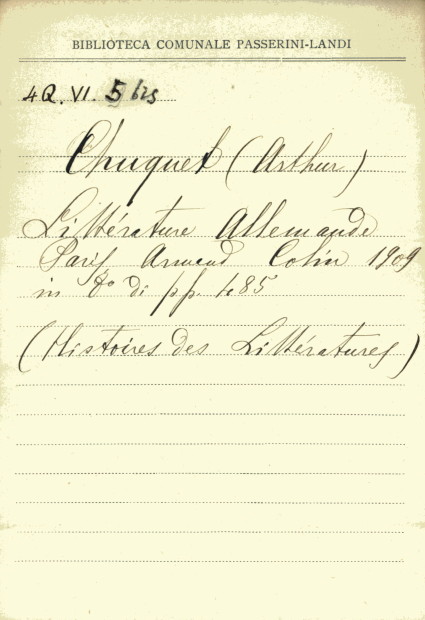 BIBLIOTECA COMUNALE PASSERINI-LANDI
4Q. VI. 5 bis
Chuquet (Arthur)
Littérature Allemande
Paris Armand Colin 1909
in 8º di pp. 485
(Histoires des Littératures)